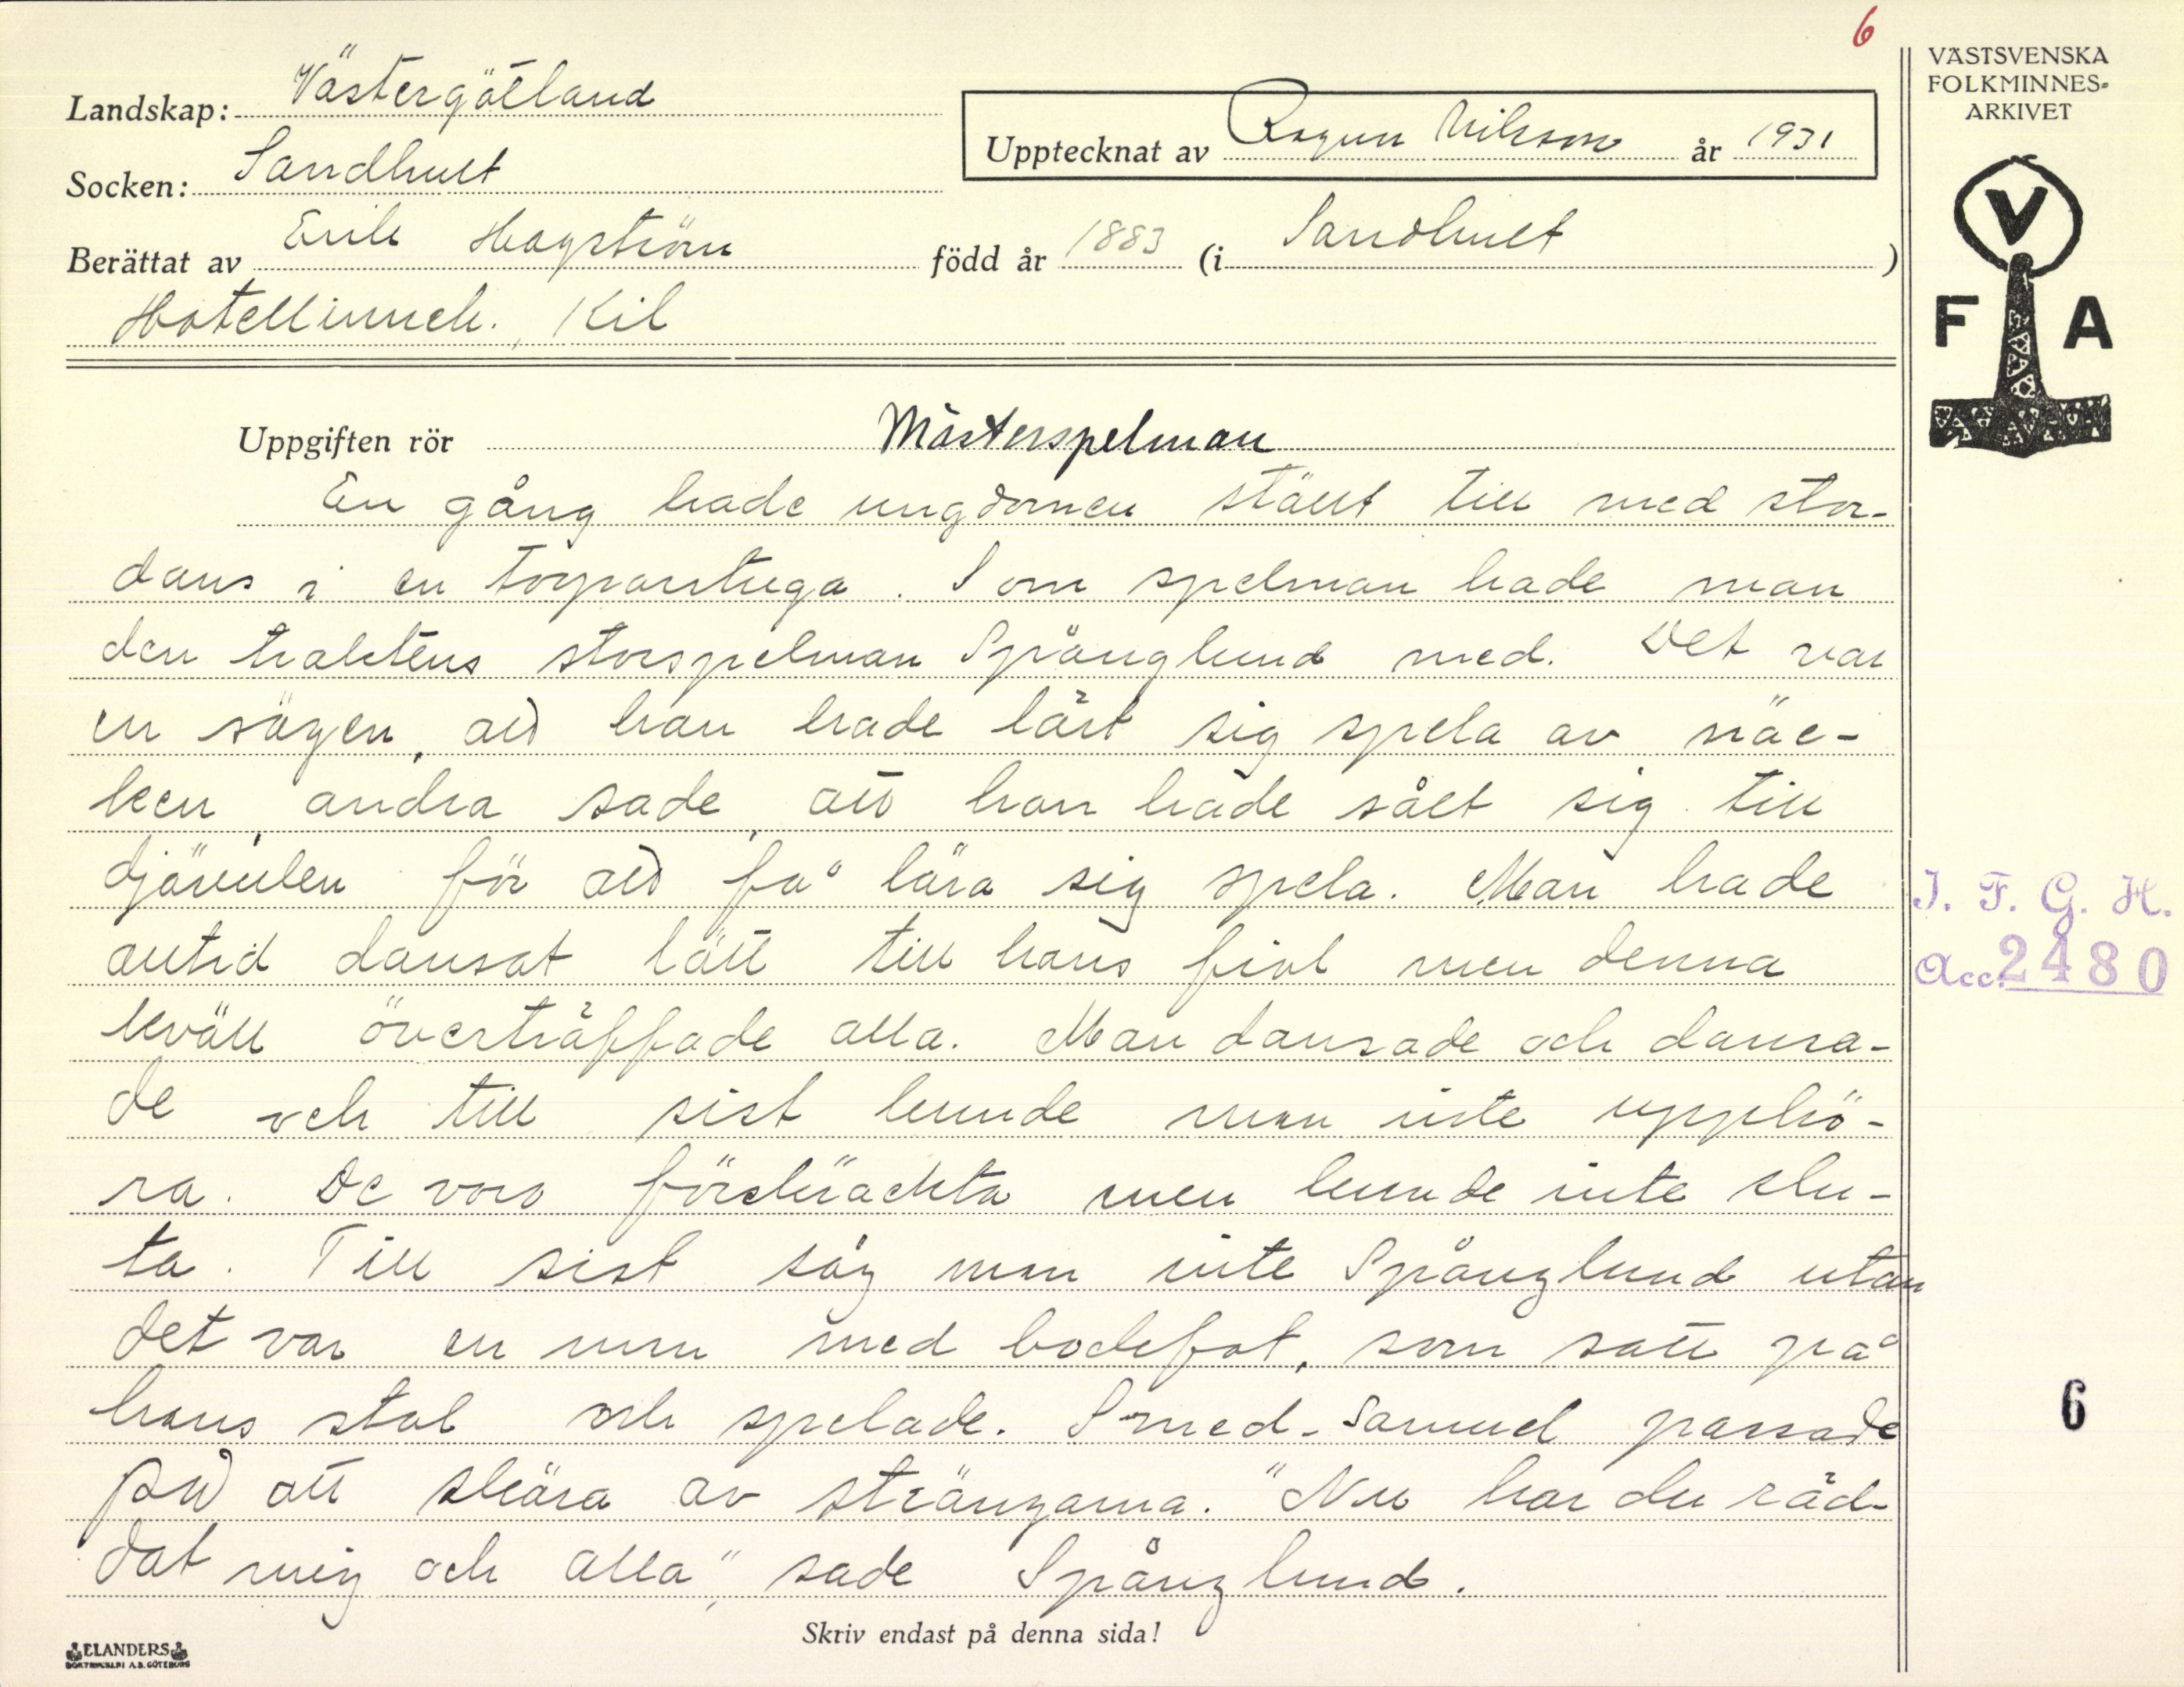 6
VÄSTSVENSKA
FOLKMINNES-
ARKIVET
V
F A
Landskap: Västergötland
Upptecknat av Ragnar Nilsson år 1931
Socken: Sandhult
Berättat av Erik Hagström född år 1883 (i Sandhult)
Hotellinneh., Kil
Uppgiften rör Mästerspelman
En gång hade ungdomen ställt till med stor-
dans i en torparstuga. Som spelman hade man
den traktens storspelman Spånglund med. Det var
en sägen, att han hade lärt sig spela av näc-
ken, andra sade, att han hade sålt sig till
djävulen för att få lära sig spela. Man hade
alltid dansat lätt till hans fiol men denna
kväll överträffade alla. Man dansade och dansa-
de och till sist kunde man inte upphö-
ra. De voro förskräckta men kunde inte slu-
ta. Till sist såg man inte Spånglund utan
det var en man med bockfot, som satt på
hans stol och spelade. Smed-Samuel passade
på att skära av strängarna. "Nu har du räd-
dat mig och alla", sade Spånglund.
I. F. G. H.
Acc. 2480
6
Skriv endast på denna sida!
ELANDERS
BOKTRYCKERI A.B. GÖTEBORG